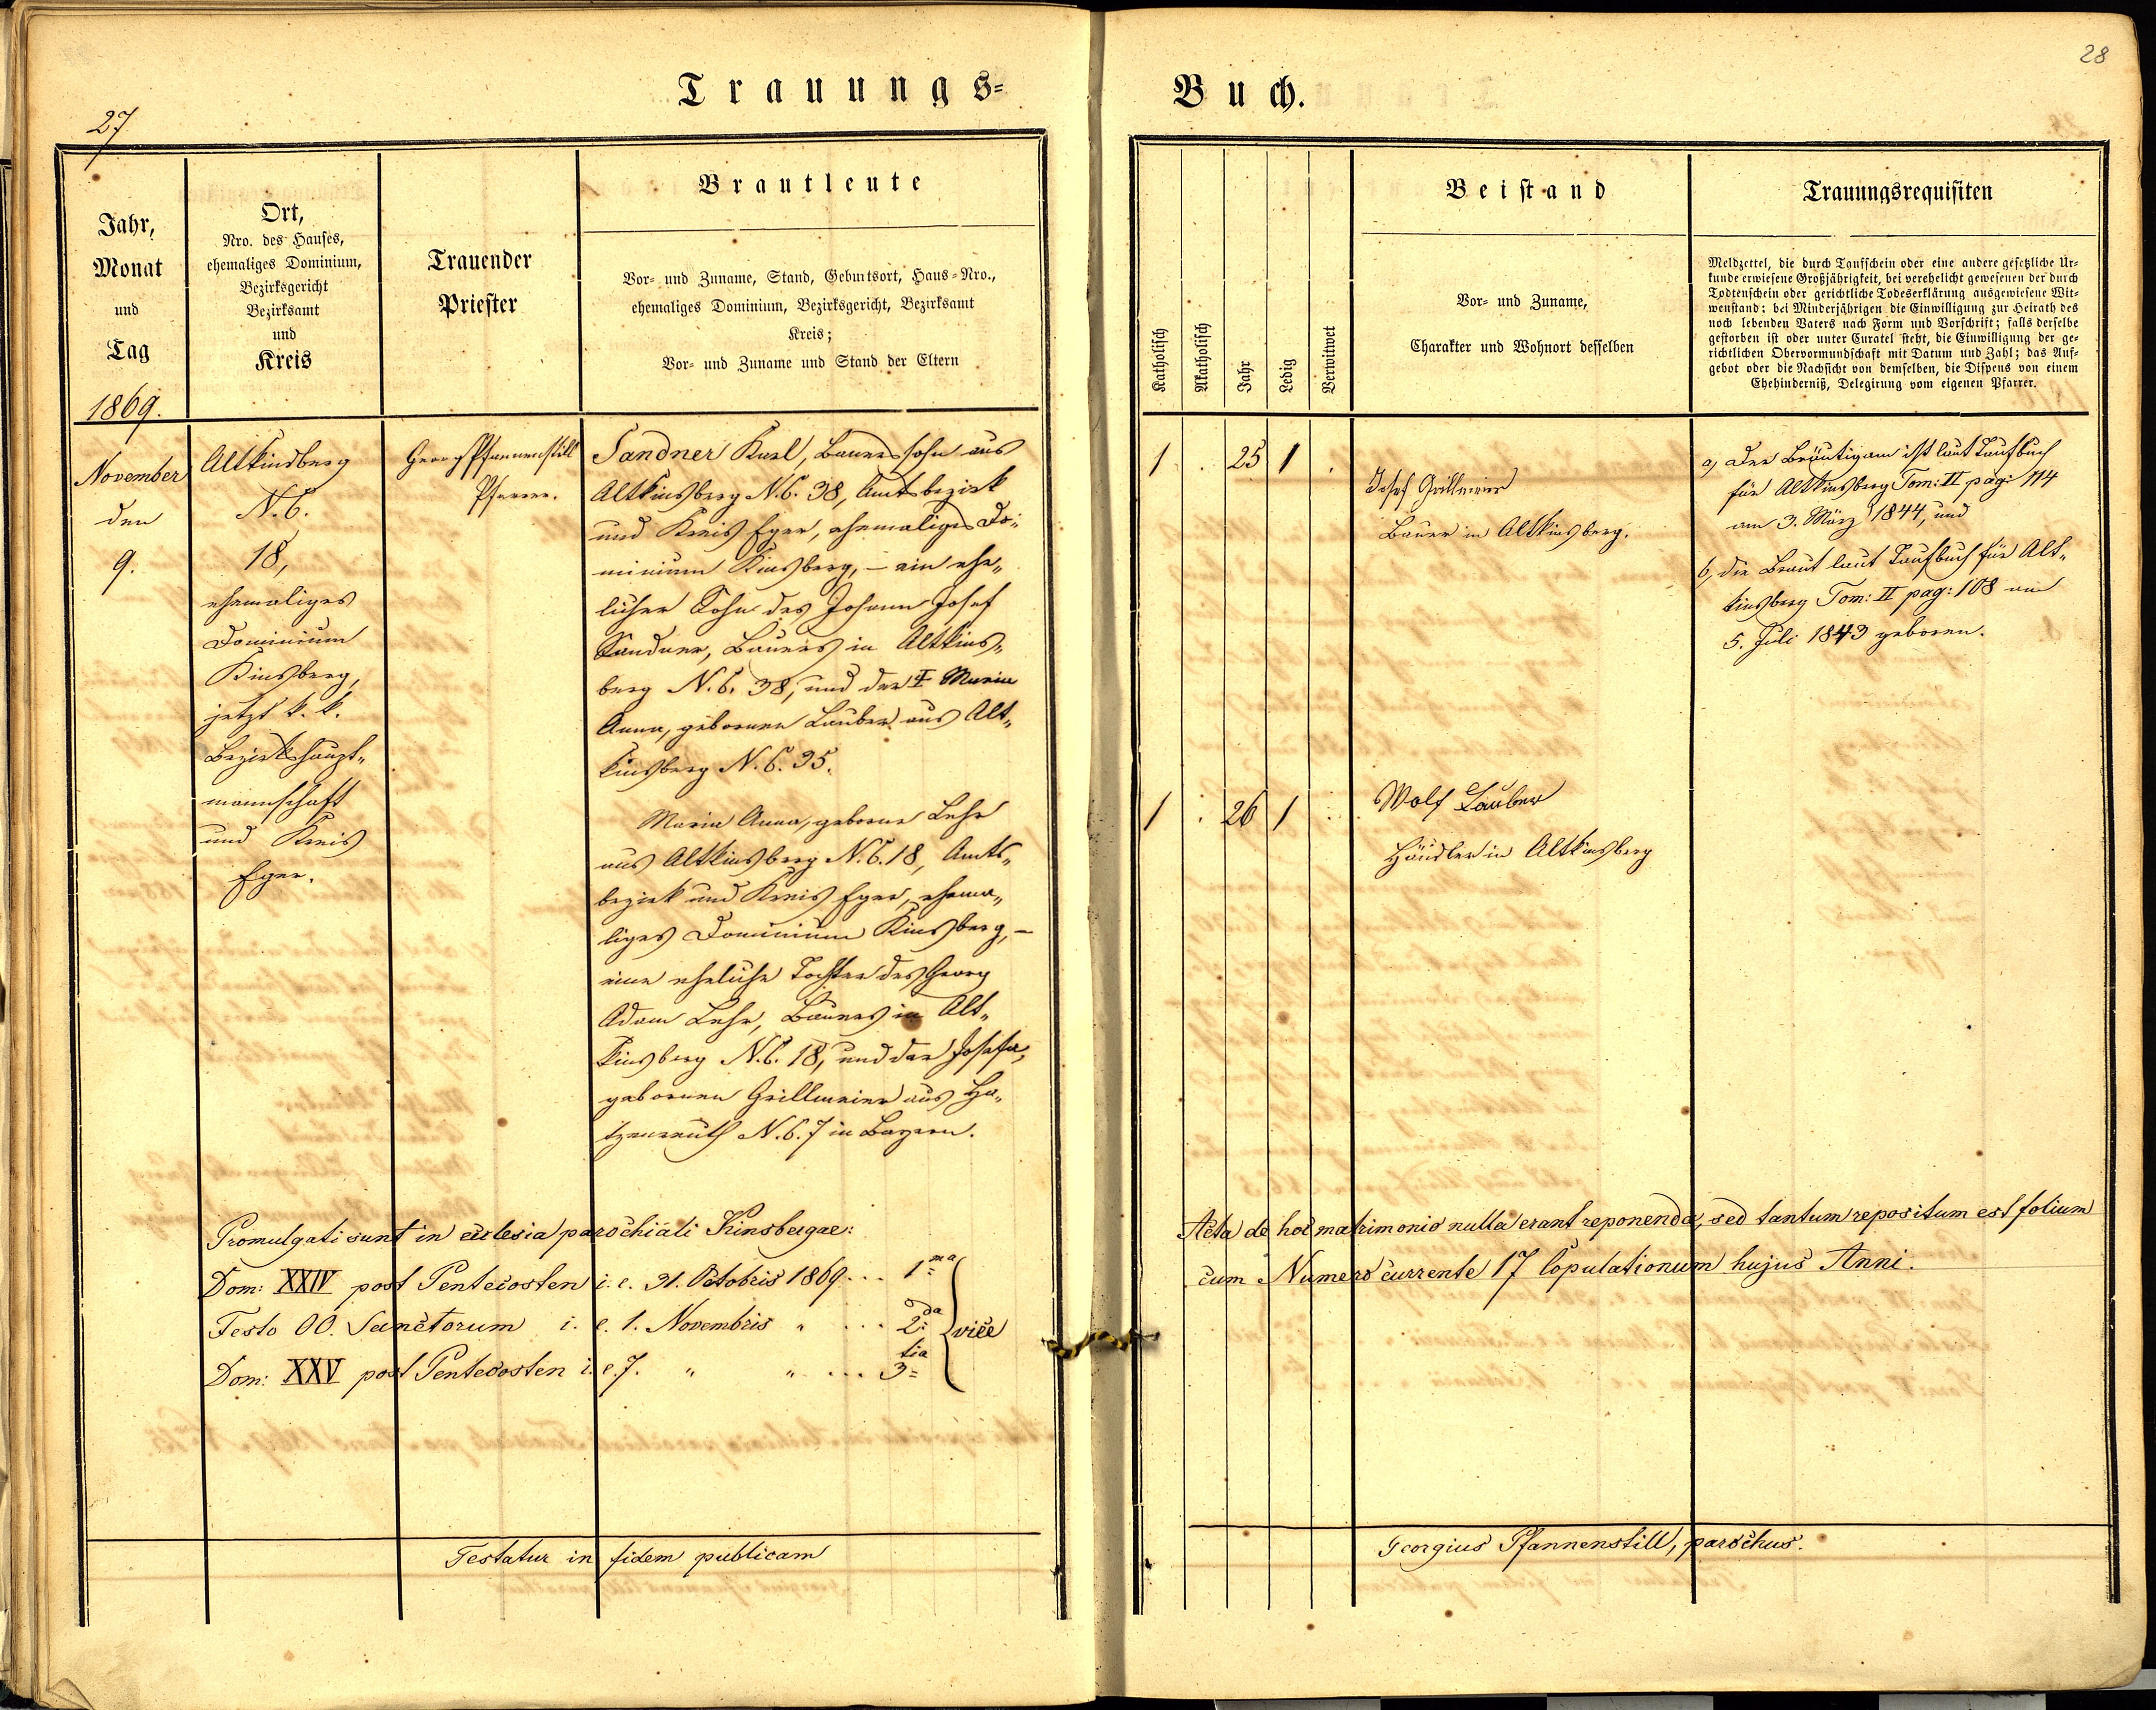 27
Trauungs=
Jahr,
Monat
und
Tag
1869.
Ort,
Nro. des Hauses,
ehemaliges Dominium,
Bezirksgericht
Bezirksamt
und
Kreis
Trauender
Priester
Brautleute
Vor- und Zuname, Stand, Geburtsort, Haus-Nro.,
ehemaliges Dominium, Bezirksgericht, Bezirksamt
Kreis;
Vor- und Zuname und Stand der Eltern
November
den
9.
Altkinsberg
N.C.
18,
ehemaliges
Dominium
Kinsberg,
jetzt k. k.
Bezirkshaupt„
mannschaft
und Kreis
Eger.
Georg Pfannenstill
Pfarrer.
Sandner Karl, Bauerssohn aus
Altkinsberg N.C. 38, Amtsbezirk
und Kreis Eger, ehemaliges Do„
minium Kinsberg, – ein ehe„
licher Sohn des Johann Josef
Sandner, Bauers in Altkins„
berg N.C. 38, und der ‡ Maria
Anna, gebornen Lauber aus Alt„
kinsberg N.C. 35.
Maria Anna, geborne Lehr
aus Altkinsberg N.C. 18, Amts„
bezirk und Kreis Eger, ehema„
liges Dominium Kinsberg, –
eine eheliche Tochter des Georg
Adam Lehr, Bauers in Alt„
kinsberg N.C. 18, und der Josefa,
gebornen Grillmeier aus Ha„
tzenreuth N.C. 7 in Bayern.
Promulgati sunt in ecclesia parochiali Kinsbergae:
Dom: XXIV post Pentecosten i. e. 31. Octobris 1869 ... 1ma
Festo OO. Sanctorum i. e. 1. Novembris „ ... 2da vice
Dom: XXV post Pentecosten i. e. 7. „ „ ... 3tia
Testatur in fidem publicam
28
Buch.
Katholisch
Akatholisch
Jahr
Ledig
Verwitwet
Beistand
Vor- und Zuname,
Charakter und Wohnort desselben
Trauungsrequisiten
Meldzettel, die durch Taufschein oder eine andere gesetzliche Ur-
kunde erwiesene Großjährigkeit, bei verehelicht gewesenen der durch
Todtenschein oder gerichtliche Todeserklärung ausgewiesene Wit-
wenstand; bei Minderjährigen die Einwilligung zur Heirath des
noch lebenden Vaters nach Form und Vorschrift; falls derselbe
gestorben ist oder unter Curatel steht, die Einwilligung der ge-
richtlichen Obervormundschaft mit Datum und Zahl; das Auf-
gebot oder die Nachsicht von demselben, die Dispens von einem
Ehehinderniß, Delegirung vom eigenen Pfarrer.
1 . 25 1 .
Josef Grillmeier
Bauer in Altkinsberg.
a, Der Bräutigam ist laut Taufbuch
für Altkinsberg Tom: II pag: 114
am 3. März 1844, und
b, die Braut laut Taufbuch für Alt„
kinsberg Tom: II pag: 108 am
5. Juli 1843 geboren.
1 . 26 1 .
Wolf Lauber
Häusler in Altkinsberg
Acta de hoc matrimonio nulla erant reponenda, sed tantum repositum est folium
cum Numero currente 17 Copulationum hujus Anni.
Georgius Pfannenstill, parochus.